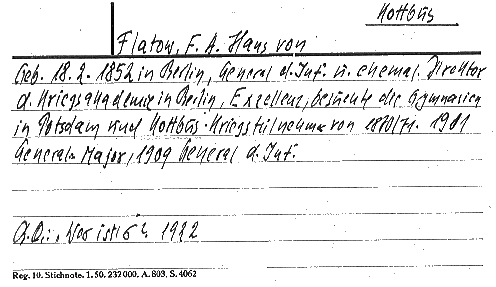 Kottbus
Flatow, F. A. Hans von
Geb. 18. 2. 1852 in Berlin, General d. Inf. u. ehemal. Direktor
d. Kriegsakademie in Berlin, Excellenz, besuchte die Gymnasien
in Potsdam und Kottbus. Kriegsteilnehmer von 1870/71. 1901
General-Major, 1909 General d. Inf.
Wer ist's 1922
Reg. 10. Stichnote. 1. 50. 232000. A. 803. S. 4062